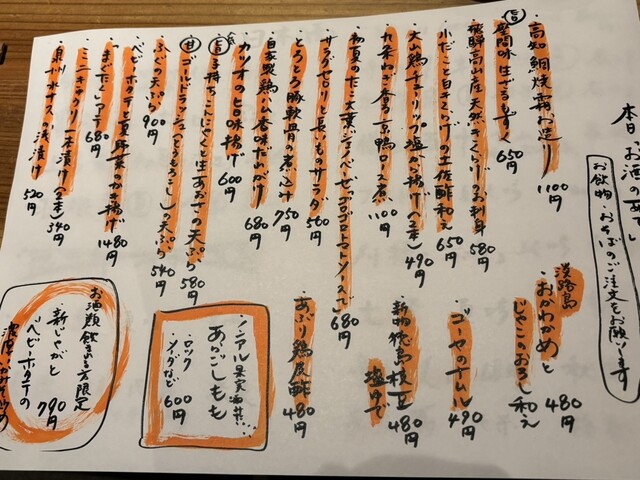 本日のお酒の
お飲物・おそばのご注文をお願いします
・高知 鯛焼霜お造り 1100円
旨
・座間味生もずく 650円
・飛騨高山産天然きくらげのお刺身 580円
・小だこと白きくらげの土佐酢和え 650円
・大山鶏チューリップ塩から揚げ(2本) 490円
・九条ねぎ香る京鴨ロース煮 1100円
・初夏のたこ大葉ジェノベーゼっ(ゴロゴロトマトソースで) 680円
・サラダセロリと長いものサラダ 560円
・とろとろ豚軟骨の煮込み 750円
・自家製鶏ハム香味だれがけ 680円
・カツオの旨味揚げ 600円
旨
・子持ちこんにゃくと生あおさの天ぷら 580円
甘
・ゴールドラッシュ(とうもろこし)の天ぷら 540円
・ふぐの天ぷら 900円
・ベビーホタテと夏野菜のかき揚げ 1480円
・まぐたくアテ 680円
・ミニキュウリ一本漬け(2本) 540円
・泉州水ナスの浅漬け 520円
淡路島
・おかわかめと
じゃこのおろし和え 480円
・ゴーヤのナムル 490円
・新物徳島枝豆
塩ゆで 480円
・あぶり鶏皮酢 480円
ノンアル果実酒
あらごしもも
・ロック
・ソーダなど 600円
お酒類飲まれる方限定
・新じゃがと
ベビーホタテの 790円